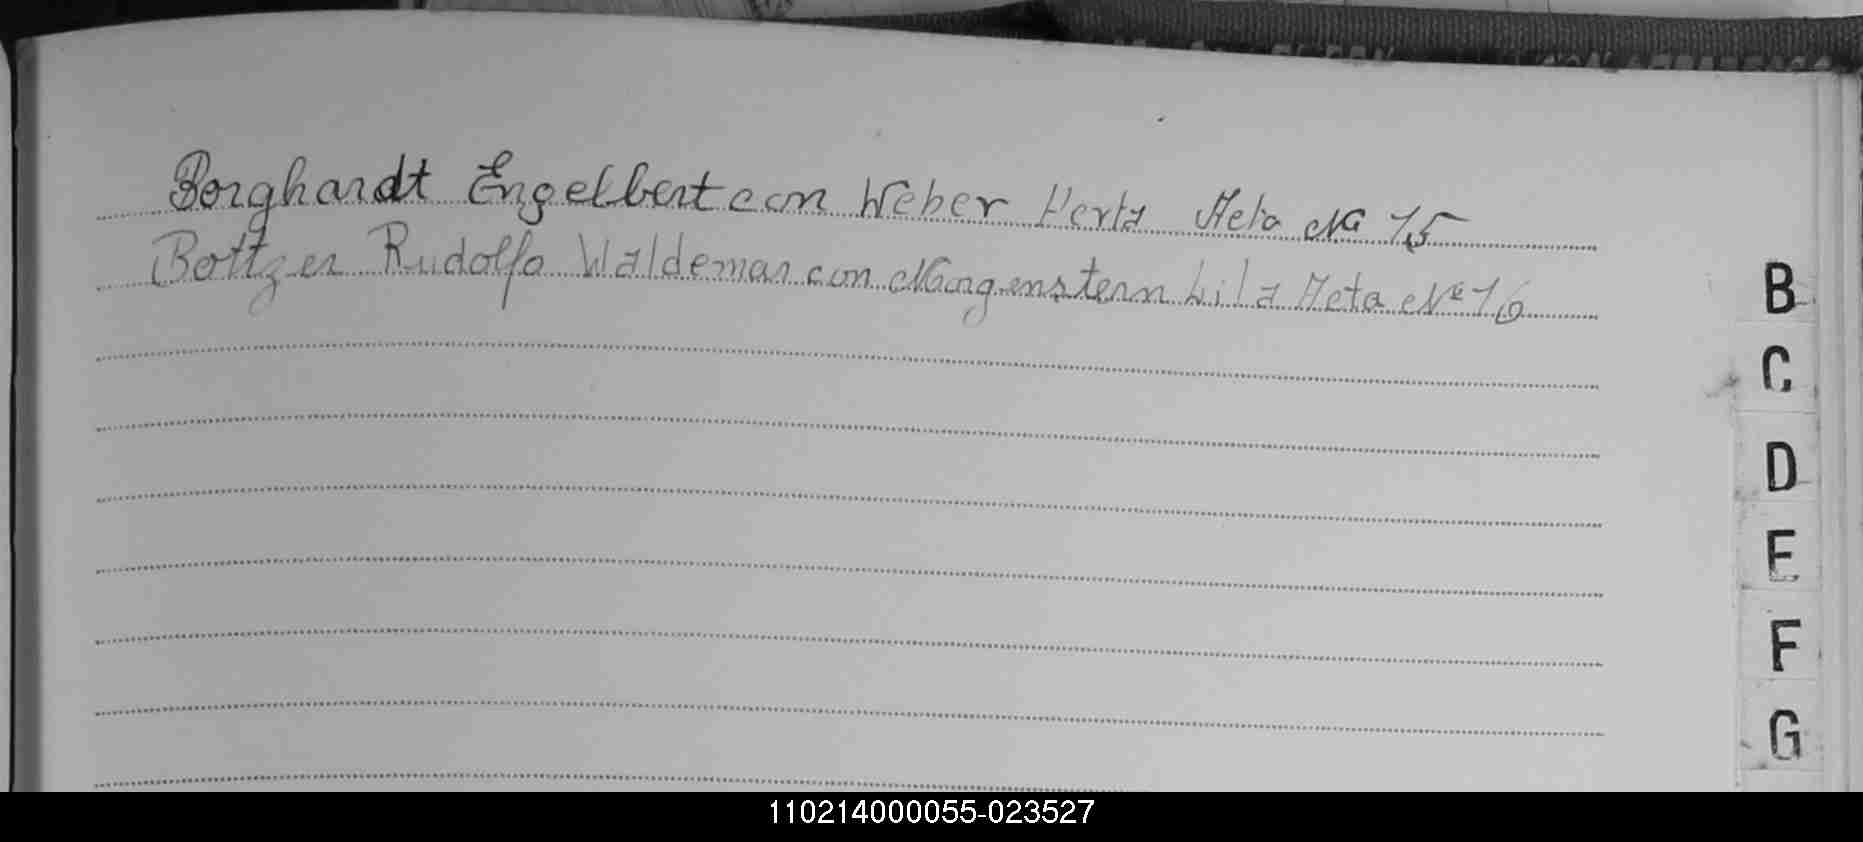 Borghardt Engelbert con Weber Herta Acta Nº 15
Bottger Rudolfo Waldemar con Morgenstern Lila Acta Nº 16
B
C
D
E
F
G
110214000055-023527